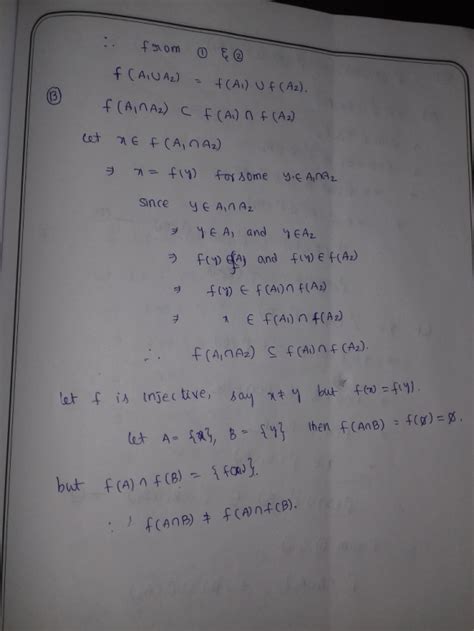 ∴ from ① & ②
f(A₁∪A₂) = f(A₁) ∪ f(A₂).
⑬ f(A₁∩A₂) ⊂ f(A₁) ∩ f(A₂)
Let x ∈ f(A₁∩A₂)
⇒ x = f(y) for some y ∈ A₁∩A₂
since y ∈ A₁∩A₂
⇒ y ∈ A₁ and y ∈ A₂
⇒ f(y) ∈ f(A₁) and f(y) ∈ f(A₂)
⇒ f(y) ∈ f(A₁) ∩ f(A₂)
⇒ x ∈ f(A₁) ∩ f(A₂)
∴ f(A₁∩A₂) ⊆ f(A₁) ∩ f(A₂).
Let f is injective, say x ≠ y but f(x) = f(y).
Let A = {x}, B = {y} then f(A∩B) = f(∅) = ∅
but f(A) ∩ f(B) = {f(x)}.
∴ f(A∩B) ≠ f(A) ∩ f(B).